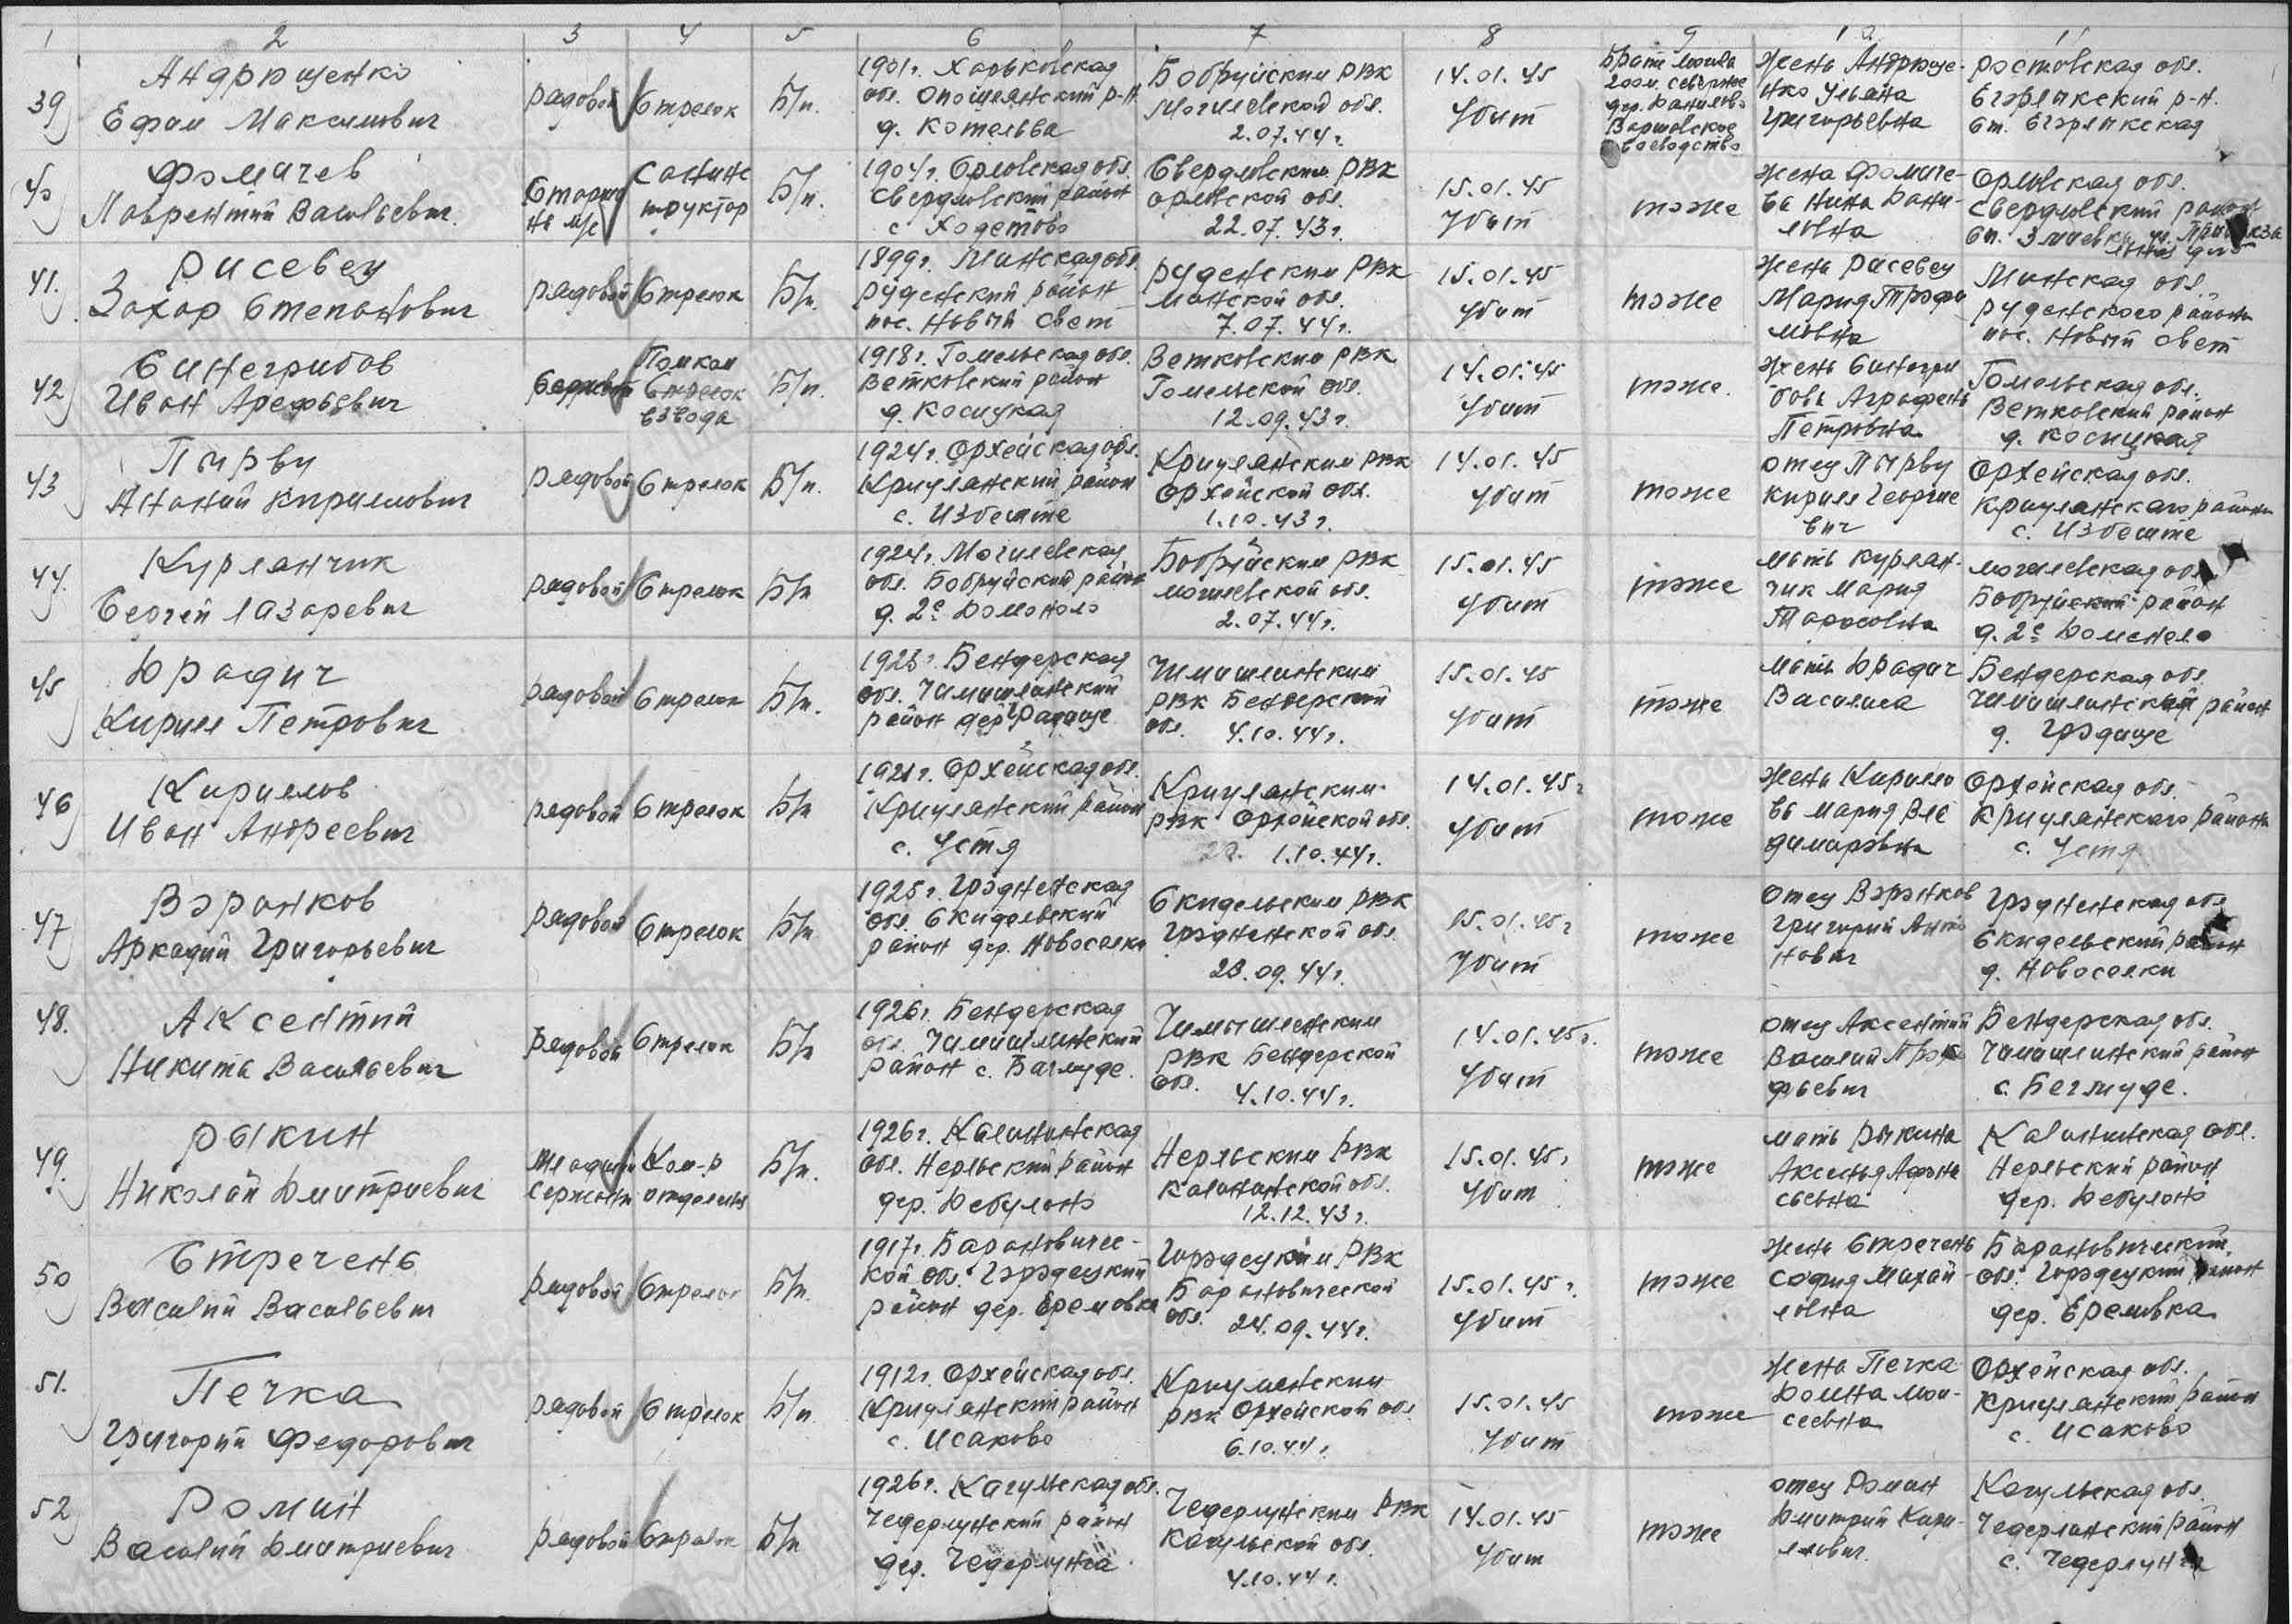 1 2 3 4 5 6 7 8 9 10 11
39 Андрющенко
Ефим Максимович
рядовой
Стрелок
Б/п.
1901г. Харьковская
обл. Опошлянский р-н.
д. Котельва
Бобруйским РВК
Могилевской обл.
2.07.44г.
14.01.45
Убит
Брат. могила
200 м. севернее
дер. Данилово
Варшавское
воеводство
жена Андрюще-
нко Ульяна
Григорьевна
Ростовская обл.
Егорлыкский р-н.
ст. Егорлыкская
40 Фомичев
Лаврентий Васильевич
Старши
на м/с
Санинс
труктор
Б/п.
1904г. Орловская обл.
Свердловский район
с Ходетово
Свердловским РВК
Орловской обл.
22.07.43г.
15.01.45
Убит
тоже
жена Фомиче-
ва Нина Дани-
ловна
Орловская обл.
Свердловский район
ст. Змиевка
41. Рисевец
Захар Степанович
рядовой
Стрелок
Б/п.
1899г. Минская обл.
Руденский район
пос. Новый Свет
Руденским РВК
Минской обл.
7.07.44г.
15.01.45
Убит
тоже
жена Рисевец
Мария Трофи
мовна
Минская обл.
Руденского района
пос. Новый свет
42 Синегрибов
Иван Арефьевич
Помком
Стрелок
взвода
Б/п.
1918г. Гомельская обл.
Ветковский район
д. Косицкая
Ветковским РВК
Гомельской обл.
12.09.43г.
14.01.45
Убит
тоже.
жена Синегри
бова Аграфена
Петровна
Гомельская обл.
Ветковский район
д. Косицкая
43 Пырву
Антоний Кириллович
рядовой
Стрелок
Б/п.
1924г. Орхейская обл.
Криулянский район
с. Избеште
Криулянским РВК
Орхейской обл.
1.10.43г.
14.01.45
Убит
тоже
отец Пырву
Кирилл Георгие
вич
Орхейская обл.
Криулянского района
с. Избеште
44. Курланчик
Сергей Лазаревич
рядовой
Стрелок
Б/п
1924г. Могилевская
обл. Бобруйский район
д. 2е Доманово
Бобруйским РВК
Могилевской обл.
2.07.44г.
15.01.45
Убит
тоже
мать Курлан-
чик Мария
Тарасовна
Могилевская обл.
Бобруйский район
д. 2е
45 Драдич
Кирилл Петрович
рядовой
Стрелок
Б/п.
Бендерская
обл. Чимишлинский
район дер. Градище
Чимишлинским
РВК Бендерской
обл. 4.10.44г.
15.01.45
Убит
тоже
мать Драдич
Василиса
Бендерская обл.
Чимишлинский район
д. Градище
46 Кириллов
Иван Андреевич
рядовой
Стрелок
Б/п
1921г. Орхейская обл.
Криулянский район
с. Устя
Криулянским
РВК Орхейской обл.
1.10.44г.
14.01.45г
Убит
тоже
жена Кирилло
ва Мария Вла
димировна
Орхейская обл.
Криулянского района
с. Устя
47 Воронков
Аркадий Григорьевич
рядовой
Стрелок
Б/п
1925г. Гродненская
обл. Скидельский
район дер. Новоселки
Скидельским РВК
Гродненской обл.
23.09.44г.
15.01.45г
Убит
тоже
отец Воронков
Григорий Анто
нович
Гродненская обл.
Скидельский район
д. Новоселки
48. Аксентий
Никита Васильевич
рядовой
Стрелок
Б/п
1926г. Бендерская
обл. Чимишлинский
район с. Баглуде.
Чимышленским
РВК Бендерской
обл. 4.10.44г.
14.01.45г.
Убит
тоже
отец Аксентий
Василий Проко
фьевич
Бендерская обл.
Чимишлинский район
с. Беглуде.
49. Рыкин
Николай Дмитриевич
Младший
Сержант
Ком-р
отделения
Б/п.
1926г. Калининская
обл. Нерльский район
дер. Дебулоно
Нерльским РВК
Калининской обл.
12.12.43г.
15.01.45г
Убит
тоже
мать Рыкина
Аксинья Афана
сьевна
Калининская обл.
Нерльский район
дер. Дебулоно
50 Стречень
Василий Васильевич
рядовой
Стрелок
Б/п.
1917г. Барановичес-
кой обл. Городецкий
район дер. Еремовка
Городецким РВК
Барановической
обл. 24.09.44г.
15.01.45г.
Убит
тоже
жена Стречень
София Михай-
ловна
Барановический
обл. Городецкий район
дер. Еремовка
51. Печка
Григорий Федорович
рядовой
Стрелок
Б/п
1912г. Орхейская обл.
Криулянский район
с. Исаково
Криулянским
РВК Орхейской обл
6.10.44г.
15.01.45
Убит
тоже
жена Печка
Домна Мои-
сеевна
Орхейская обл.
Криулянский район
с. Исаково
52 Роман
Василий Дмитриевич
рядовой
Стрелок
Б/п
1926г. Кагульская обл.
Чедерлунский район
дер. Чедерлунга
Чедерлунским РВК
Кагульской обл.
4.10.44г.
14.01.45
Убит
тоже
отец Роман
Дмитрий Кири-
ллович
Кагульская обл.
Чедерланский район
с. Чедерлунга